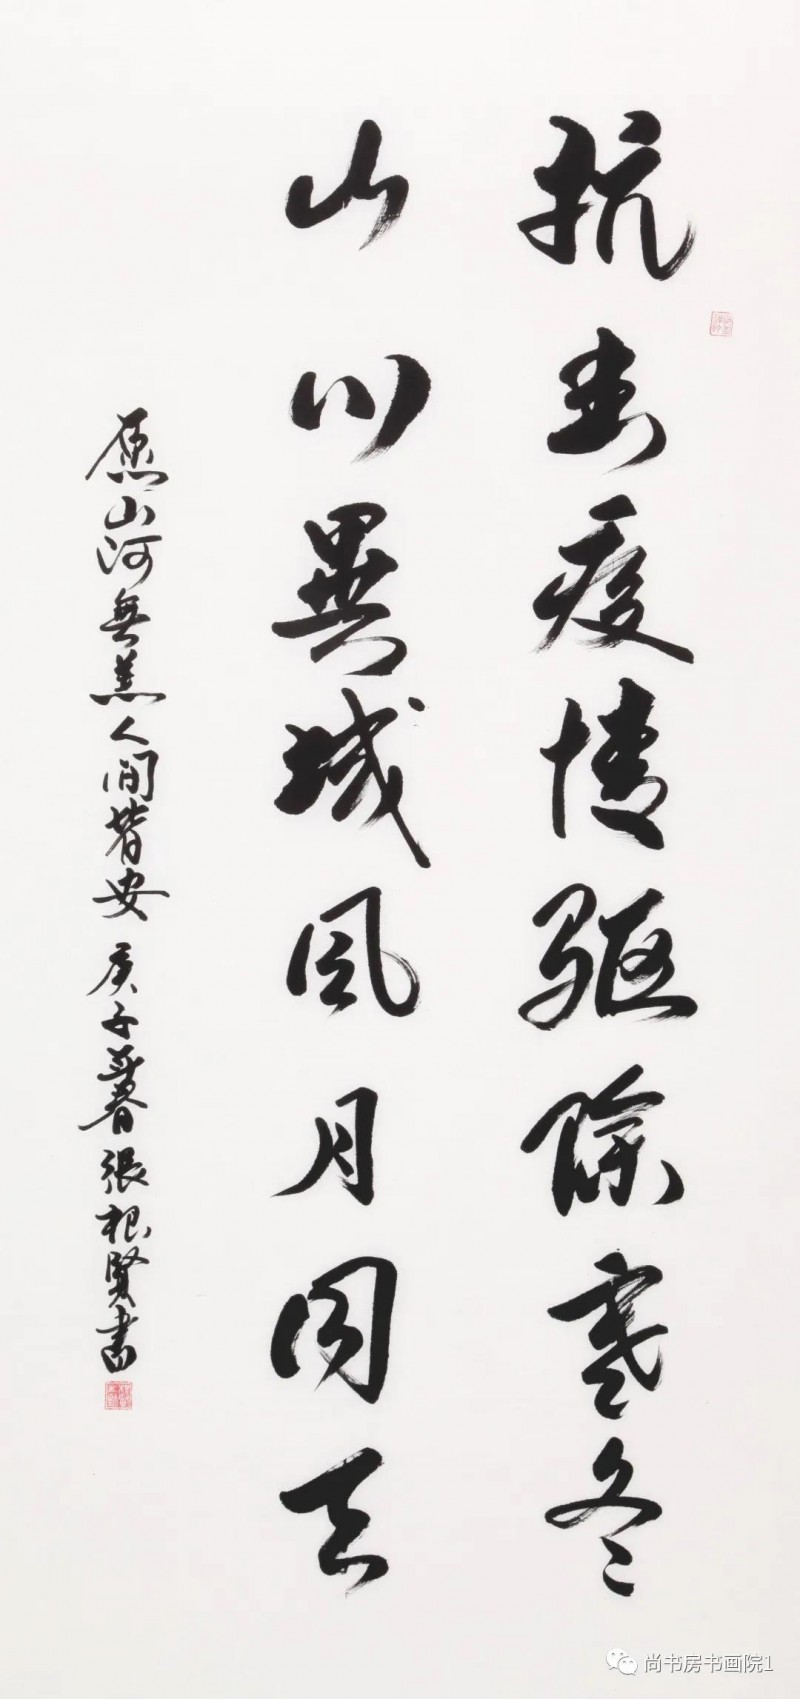 抗击疫情驱除寒冬
山川異域风月同天
愿山河無恙人间皆安 庚子春張根賢書
尚书房书画院1